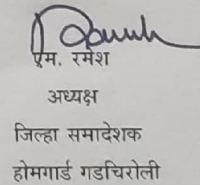 एम. रमेश
अध्यक्ष
जिल्हा समादेशक
होमगार्ड गडचिरोली